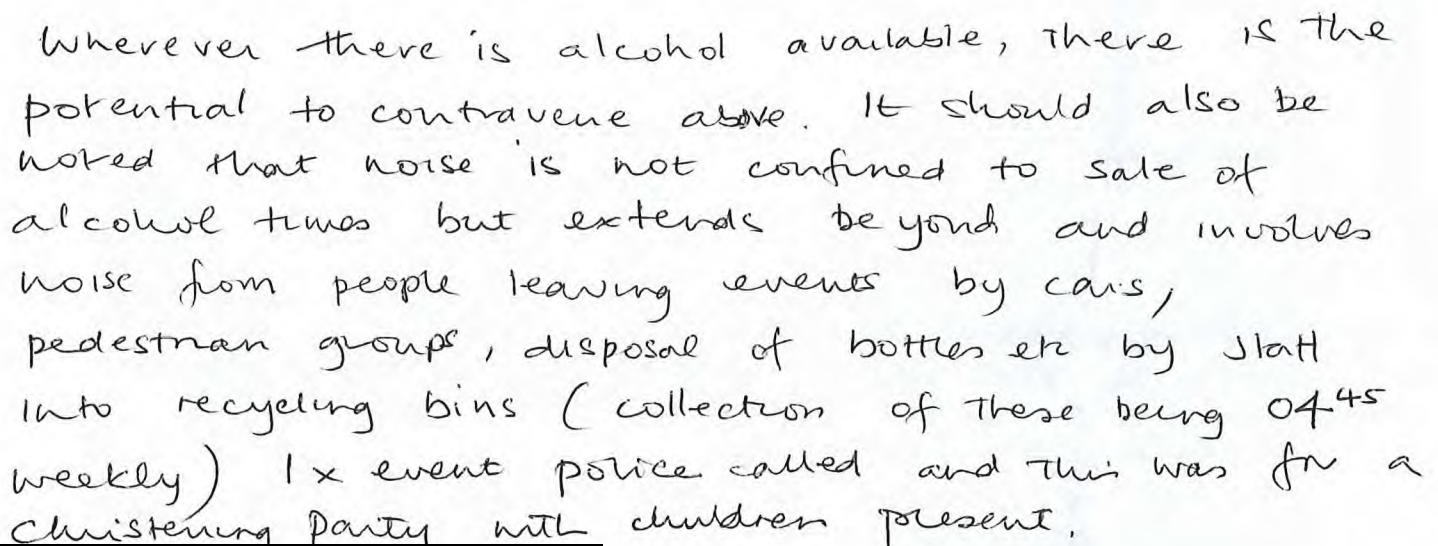 Wherever there is alcohol available, There is the
potential to contravene above. It should also be
noted that noise is not confined to sale of
alcohol times but extends beyond and involves
noise from people leaving events by cars,
pedestrian groups, disposal of bottles etc by staff
into recycling bins (collection of These being 04.45
weekly) 1 x event police called and This was for a
Christening Party with children present.